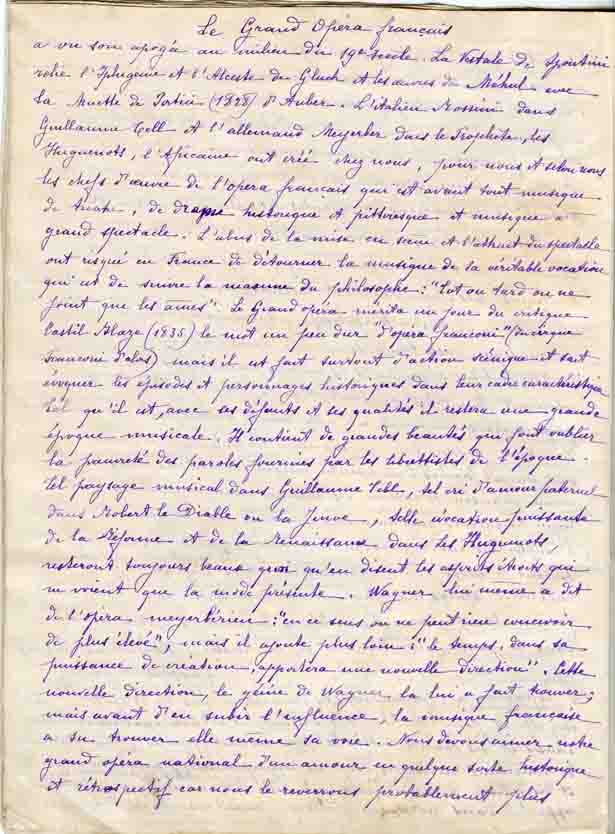 Le Grand Opéra français
a vu son apogée au milieu du 19e siècle. La Vestale de Spontini
relie l'Iphigénie et l'Alceste de Gluck et les œuvres de Méhul avec
La Muette de Portici (1828) d'Auber. L'italien Rossini dans
Guillaume Tell et l'allemand Meyerber dans le Prophète, les
Huguenots, l'Africaine ont créé chez nous, pour nous et selon nous
les chefs d'œuvre de l'opéra français qui est avant tout musique
de théâtre, de drame historique et pittoresque et musique à
grand spectacle. L'abus de la mise en scène et l'attrait du spectacle
ont risqué en France de détourner la musique de sa véritable vocation
qui est de suivre la maxime du philosophe : "Tot ou tard on ne
jouit que des âmes". Le Grand opéra mérita un jour du critique
Castil Blaze (1835) le mot un peu dur "d'opéra Franconi" (du cirque
Franconi d'alors) mais il est fait surtout d'action scénique et sait
évoquer les épisodes et personnages historiques dans leur cadre caractéristique
Tel qu'il est, avec ses défauts et ses qualités il restera une grande
époque musicale. Il contient de grandes beautés qui font oublier
la pauvreté des paroles fournies par les librettistes de l'époque.
Tel paysage musical dans Guillaume Tell, tel cri d'amour paternel
dans Robert le Diable ou la Juive, telle évocation puissante
de la Réforme et de la Renaissance dans les Huguenots,
resteront toujours beaux quoi qu'en disent les esprits étroits qui
ne voient que la mode présente. Wagner lui même a dit
de l'opéra meyerbérien : "en ce sens on ne peut rien concevoir
de plus élevé", mais il ajoute plus loin : "le temps, dans sa
puissance de création, apportera une nouvelle direction". Cette
nouvelle direction, le génie de Wagner la lui a fait trouver ;
mais avant d'en subir l'influence, la musique française
a su trouver elle même sa voie. Nous devons aimer notre
grand opéra national d'un amour en quelque sorte historique
et rétrospectif car nous le reverrons probablement plus